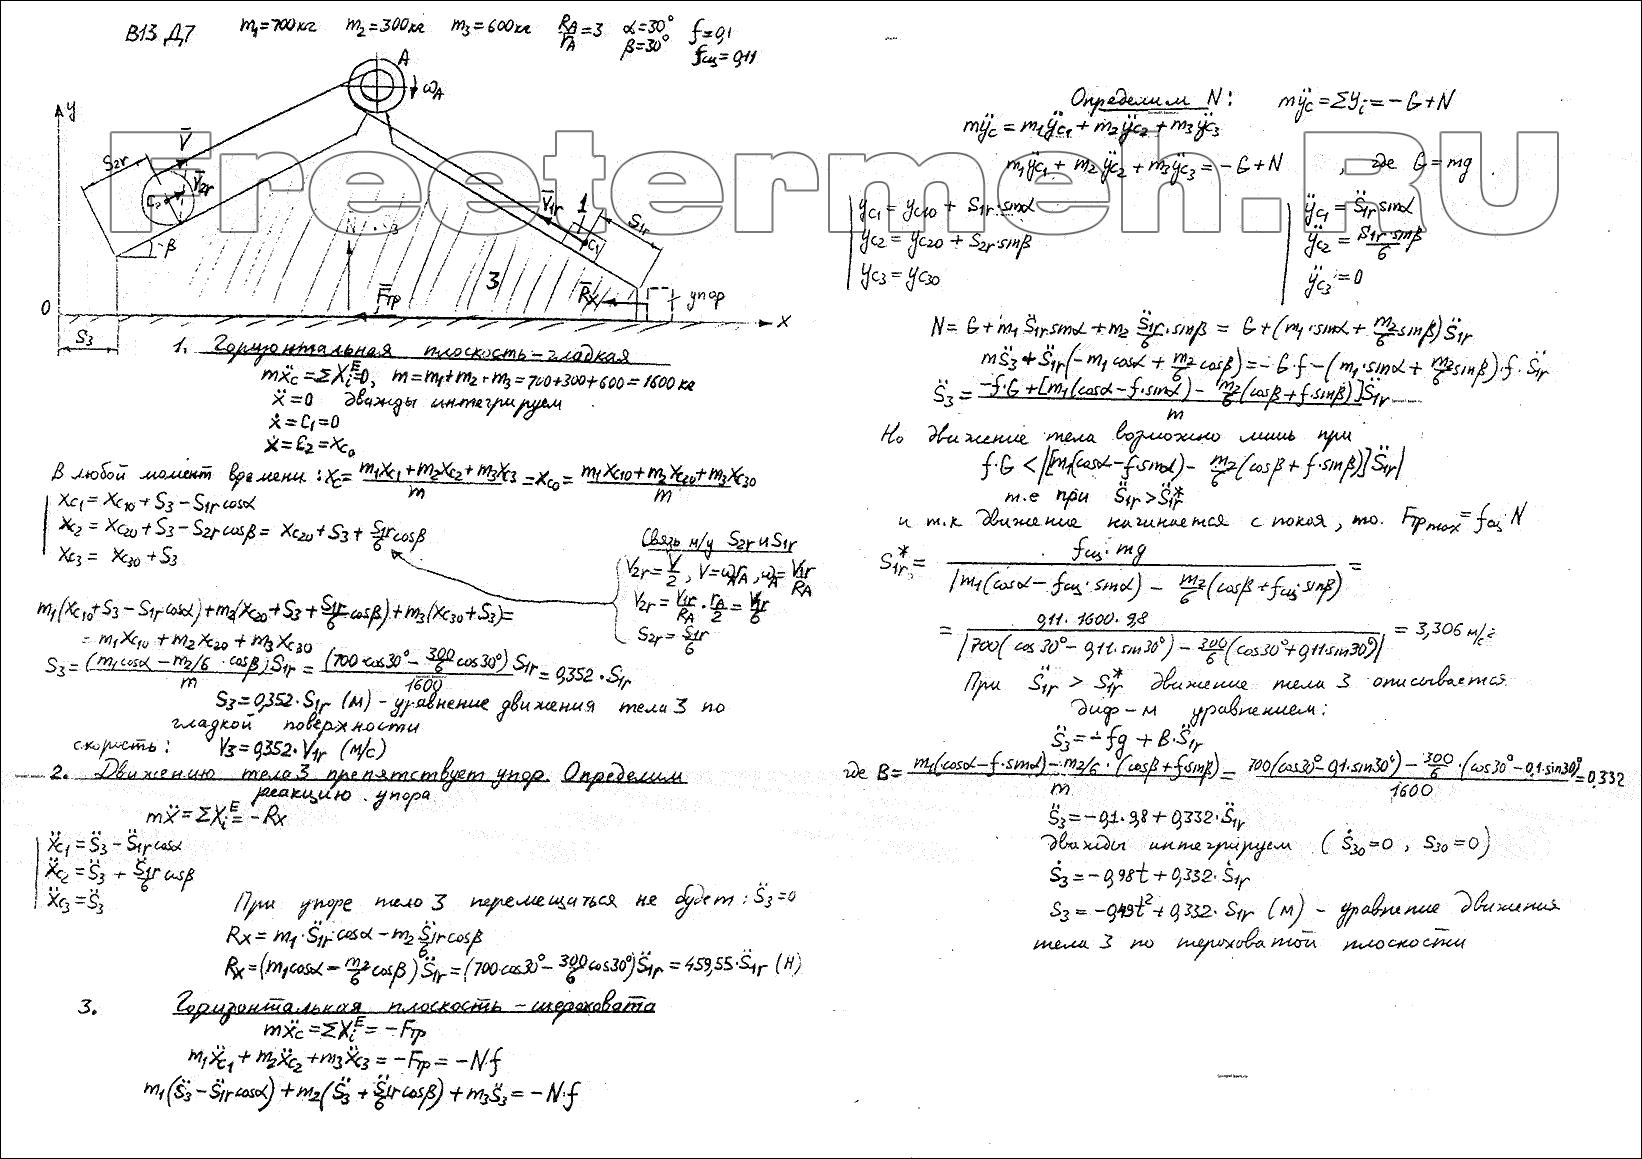 В13 Д7 m₁=700кг m₂=300кг m₃=600кг R_A/r_A=3 α=30° β=30° f=0,1 f_сц=0,11
y
A
ω_A
V̄
S₂r
V̄₂r
C₂
β
V̄₁r
1
S₁r
C₁
3
F̄тр
R̄x
упор
0
x
S₃
Freetermeh.RU
1. Горизонтальная плоскость – гладкая
mẍc=ΣXᵢᴱ=0, m=m₁+m₂+m₃=700+300+600=1600 кг
ẍ=0 дважды интегрируем
ẋ=C₁=0
x=C₂=xc₀
В любой момент времени: xc=(m₁xc₁+m₂xc₂+m₃x₃)/m=xc₀=(m₁xc₁₀+m₂xc₂₀+m₃xc₃₀)/m
xc₁=xc₁₀+S₃−S₁r cosα
xc₂=xc₂₀+S₃−S₂r cosβ=xc₂₀+S₃+S₁r/6 cosβ
xc₃=xc₃₀+S₃
Связь м/у S₂r и S₁r
V₂r=V/2, V=ω_A r_A, ω_A=V₁r/R_A
V₂r=V₁r/R_A · r_A/2=V₁r/6
S₂r=S₁r/6
m₁(xc₁₀+S₃−S₁r cosα)+m₂(xc₂₀+S₃+S₁r/6 cosβ)+m₃(xc₃₀+S₃)=
=m₁xc₁₀+m₂xc₂₀+m₃xc₃₀
S₃=(m₁cosα−m₂/6·cosβ)S₁r/m=(700·cos30°−300/6 cos30°)/1600 S₁r=0,352·S₁r
S₃=0,352·S₁r (м) – уравнение движения тела 3 по
гладкой поверхности
скорость: V₃=0,352·V₁r (м/с)
2. Движению тела 3 препятствует упор. Определим
реакцию упора
mẍ=ΣXᵢᴱ=−Rx
ẍc₁=S̈₃−S̈₁r cosα
ẍc₂=S̈₃+S̈₁r/6 cosβ
ẍc₃=S̈₃
При упоре тело 3 перемещаться не будет: S̈₃=0
Rx=m₁·S̈₁r·cosα−m₂ S̈₁r/6 cosβ
Rx=(m₁cosα−m₂/6 cosβ)S̈₁r=(700cos30°−300/6 cos30°)S̈₁r=459,55·S̈₁r (Н)
3. Горизонтальная плоскость – шероховата
mẍc=ΣXᵢᴱ=−Fтр
m₁ẍc₁+m₂ẍc₂+m₃ẍc₃=−Fтр=−N·f
m₁(S̈₃−S̈₁r cosα)+m₂(S̈₃+S̈₁r/6 cosβ)+m₃S̈₃=−N·f
Определим N: mÿc=ΣYᵢ=−G+N
mÿc=m₁ÿc₁+m₂ÿc₂+m₃ÿc₃
m₁ÿc₁+m₂ÿc₂+m₃ÿc₃=−G+N, где G=mg
yc₁=yc₁₀+S₁r·sinα
yc₂=yc₂₀+S₂r·sinβ
yc₃=yc₃₀
ÿc₁=S̈₁r sinα
ÿc₂=S̈₁r·sinβ/6
ÿc₃=0
N=G+m₁S̈₁r sinα+m₂ S̈₁r/6·sinβ=G+(m₁·sinα+m₂/6 sinβ)S̈₁r
mS̈₃+S̈₁r(−m₁cosα+m₂/6 cosβ)=−G·f−(m₁·sinα+m₂/6 sinβ)·f·S̈₁r
S̈₃=(−f·G+[m₁(cosα−f·sinα)−m₂/6(cosβ+f·sinβ)]S̈₁r)/m
Но движение тела возможно лишь при
f·G<|[m₁(cosα−f·sinα)−m₂/6(cosβ+f·sinβ)]S̈₁r|
т.е при S̈₁r>S̈₁r*
и т.к движение начинается с покоя, то. Fтр max=f_сц N
S̈₁r*=f_сц·mg/|m₁(cosα−f_сц·sinα)−m₂/6(cosβ+f_сц·sinβ)|=
=0,11·1600·9,8/|700(cos30°−0,11·sin30°)−300/6(cos30°+0,11sin30°)|=3,306 м/с²
При S̈₁r>S̈₁r* движение тела 3 описывается
диф-м уравнением:
S̈₃=−fg+B·S̈₁r
где B=(m₁(cosα−f·sinα)−m₂/6·(cosβ+f·sinβ))/m=(700(cos30°−0,1·sin30°)−300/6·(cos30°−0,1·sin30°))/1600=0,332
S̈₃=−0,1·9,8+0,332·S̈₁r
дважды интегрируем (Ṡ₃₀=0, S₃₀=0)
Ṡ₃=−0,98t+0,332·Ṡ₁r
S₃=−0,49t²+0,332·S₁r (м) – уравнение движения
тела 3 по шероховатой плоскости